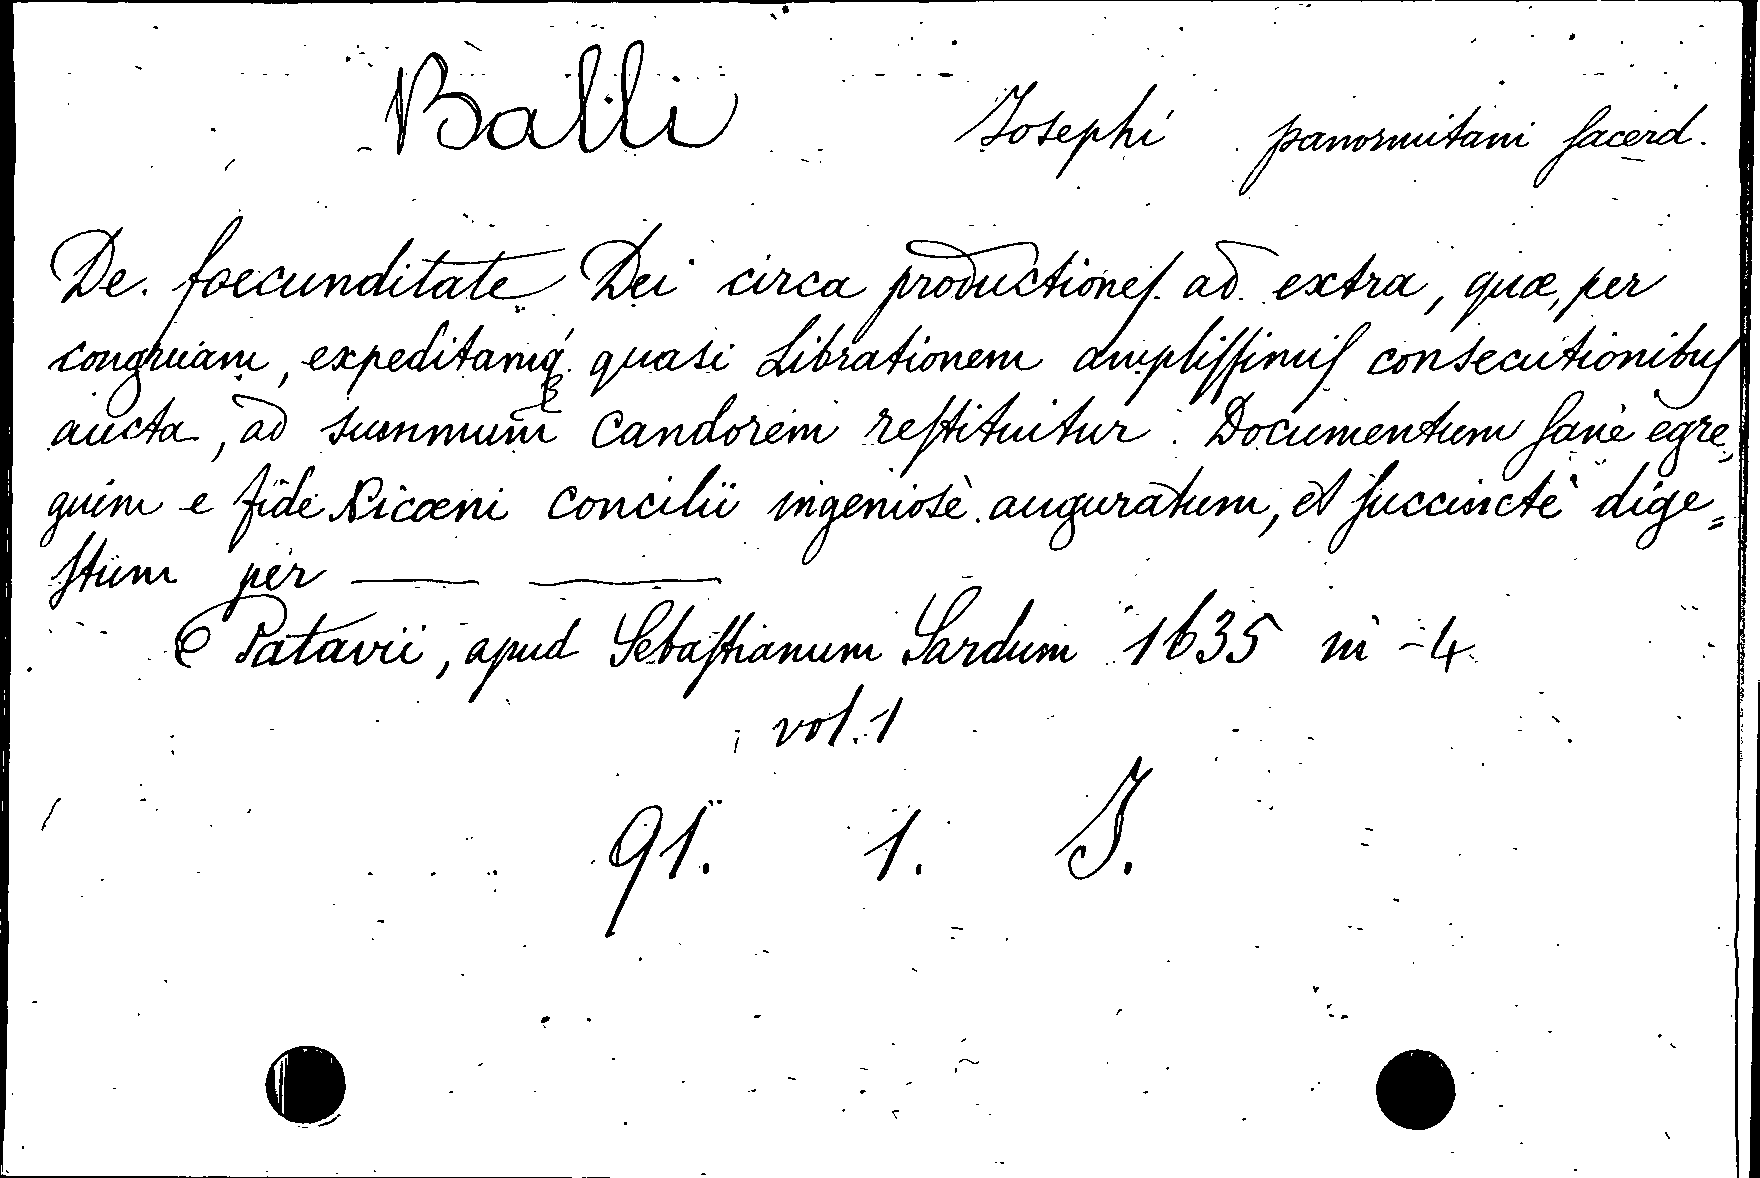 Balli Josephi panormitani sacerd.
De foecunditate Dei circa productiones ad extra, quæ, per
congruam, expeditamq́ quasi Librationem amplissimis consecutionibus
aucta, ad summum candorem restituitur. Documentum sanè egre„
guim e fide Nicæni concilii ingeniosè auguratum, et succinctè dige„
stum per — —
Patavii, apud Sebastianum Sardum 1635 in-4
vol. 1
91. 1. J.